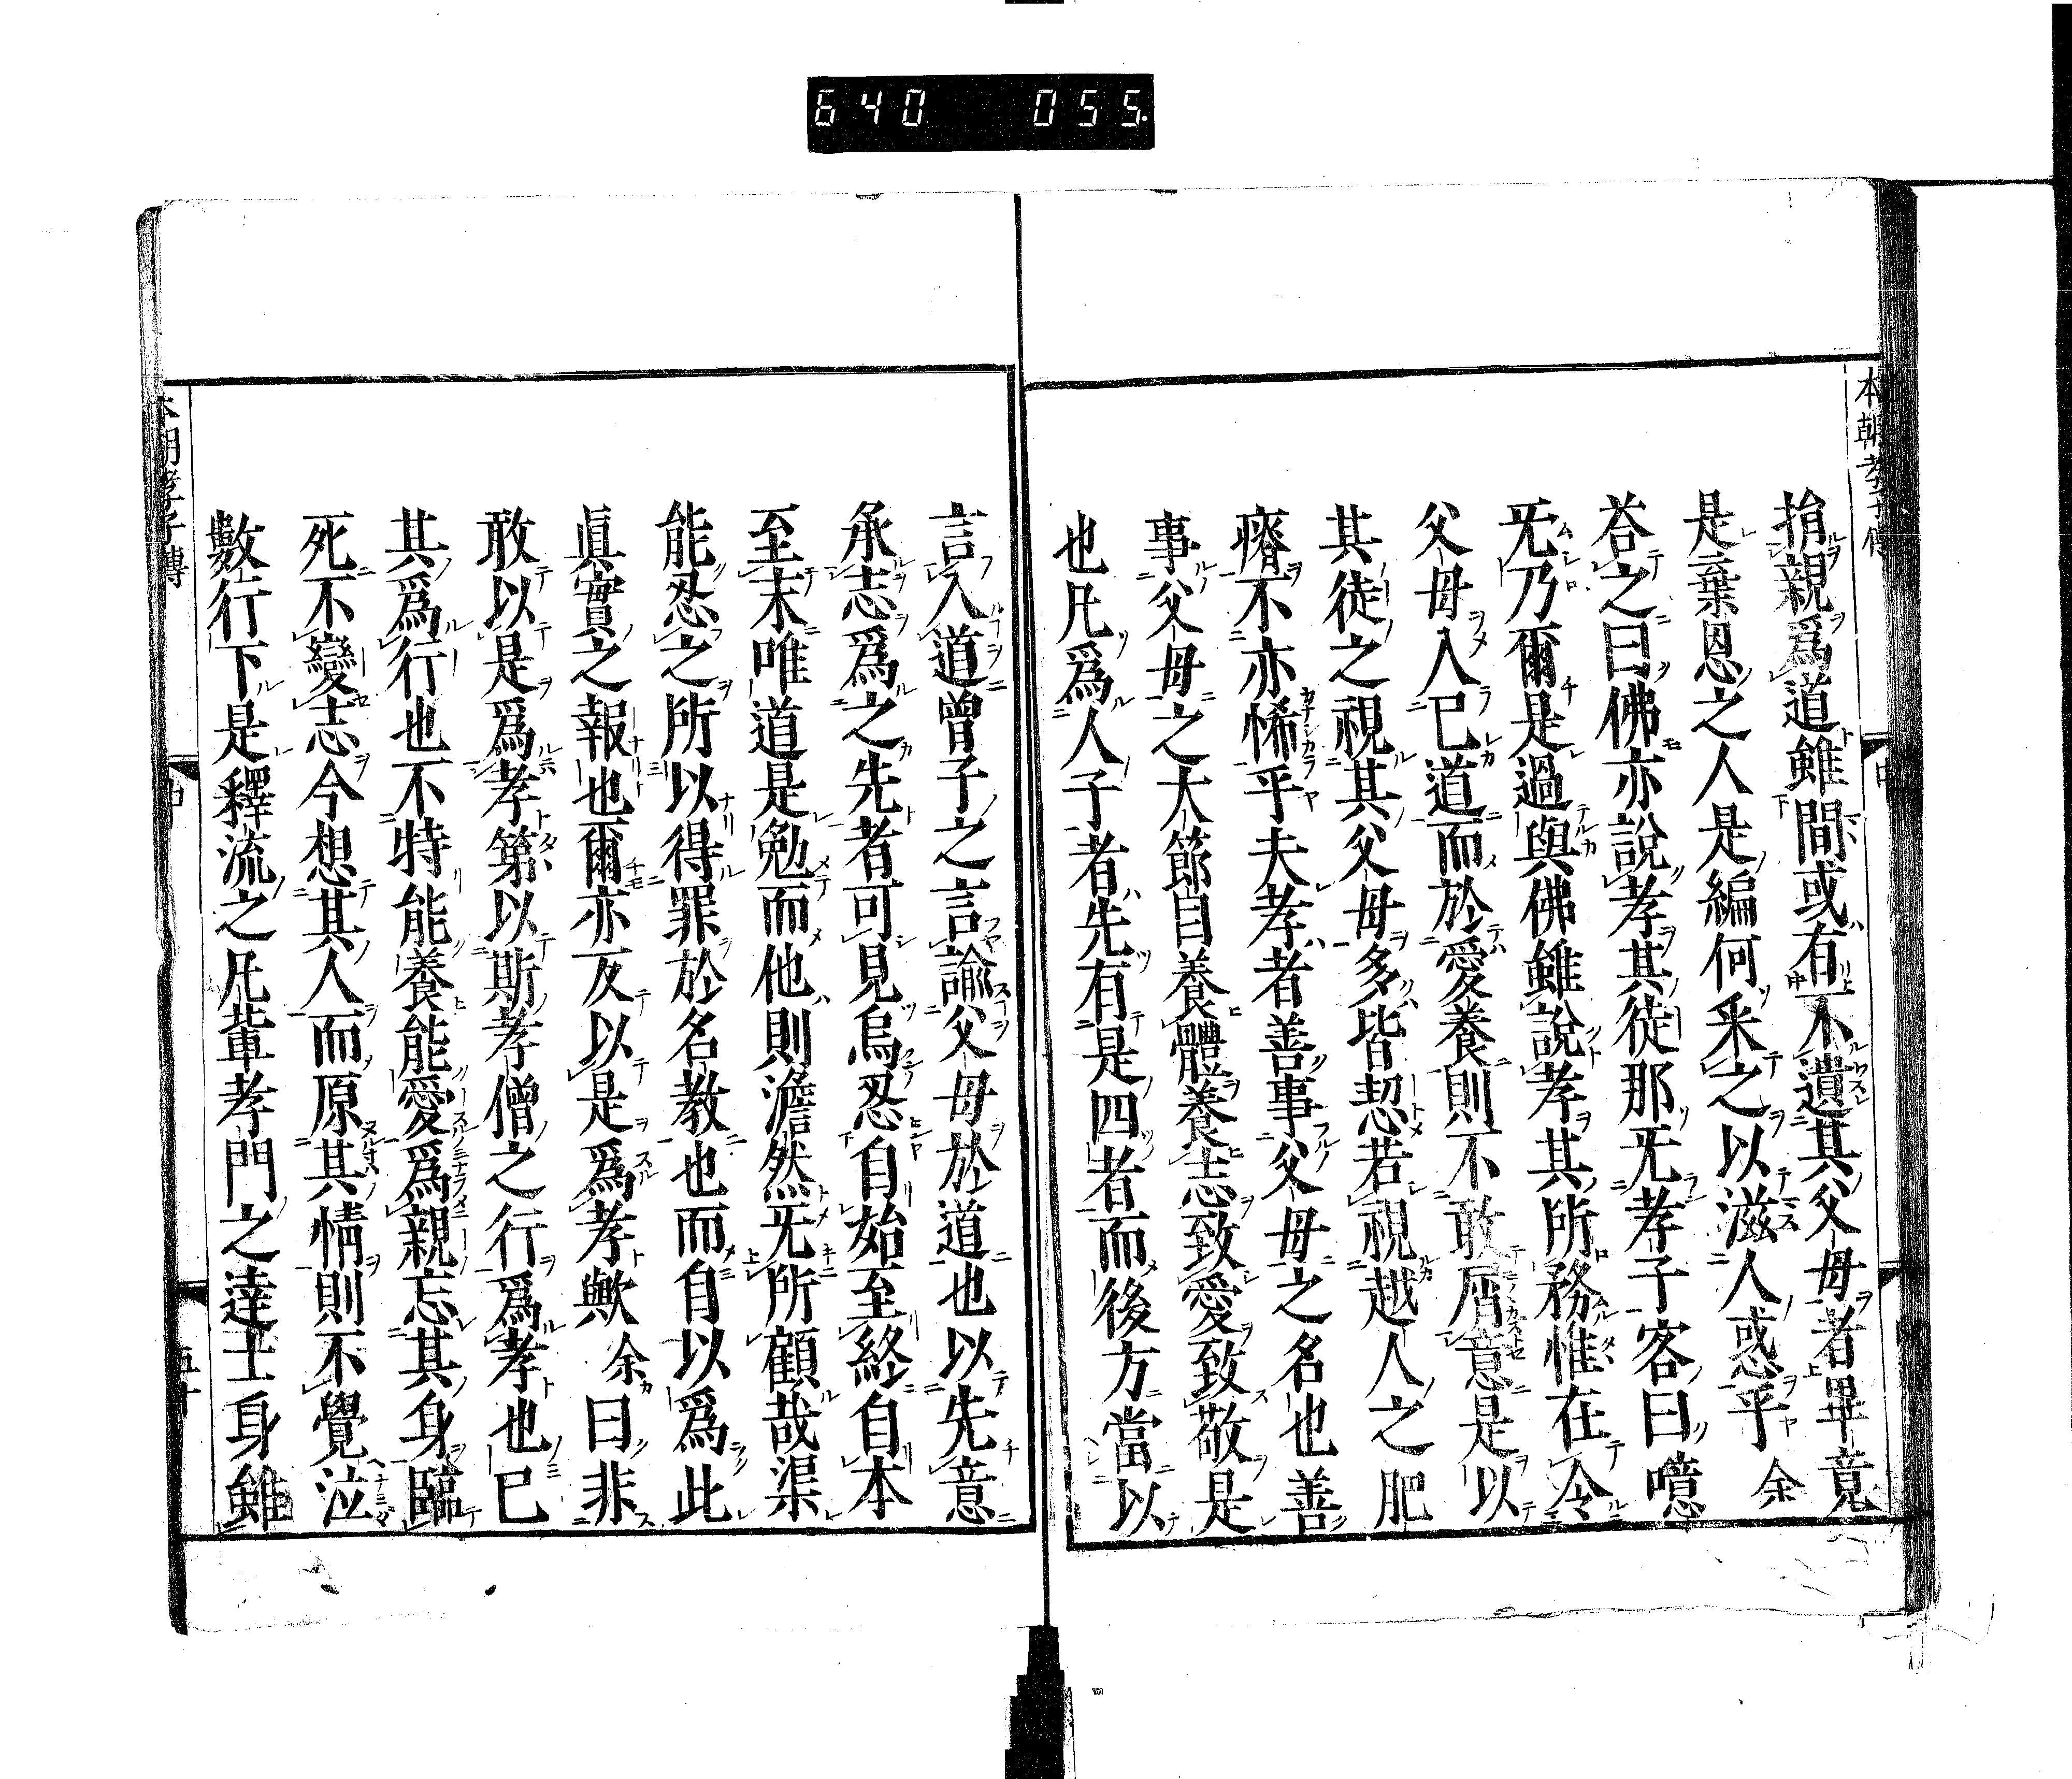 640 055
本朝孝子傳
中
捐親爲道雖間或有不遺其父母者畢竟
是棄恩之人是編何采之以滋人惑乎 余
荅之曰佛亦說孝其徒那无孝子客曰噫
无乃爾是過與佛雖說孝其所務惟在令
父母入己道而於愛養則不敢屑意是以
其徒之視其父母多皆恝若視越人之肥
瘠不亦悕乎夫孝者善事父母之名也善
事父母之大節自養體養志致愛致敬是
也凡爲人子者先有是四者而後方當以
言入道曾子之言諭父母於道也以先意
承志爲之先者可見烏忍自始至終自本
至末唯道是勉而他則澹然无所顧哉渠
能忍之所以得罪於名教也而自以爲此
眞實之報也爾亦反以是爲孝歟 余曰非
敢以是爲孝第以斯孝僧之行爲孝也已
其爲行也不特能養能愛爲親忘其身臨
死不變志今想其人而原其情則不覺泣
數行下是釋流之凡輩孝門之達士身雖
本朝孝子傳
中
五十